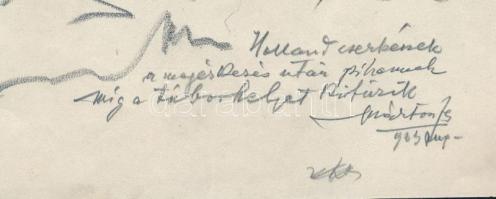 Holland cserkészek
a megérkezés után pihennek
míg a táborhelyet kitűzik
Márton